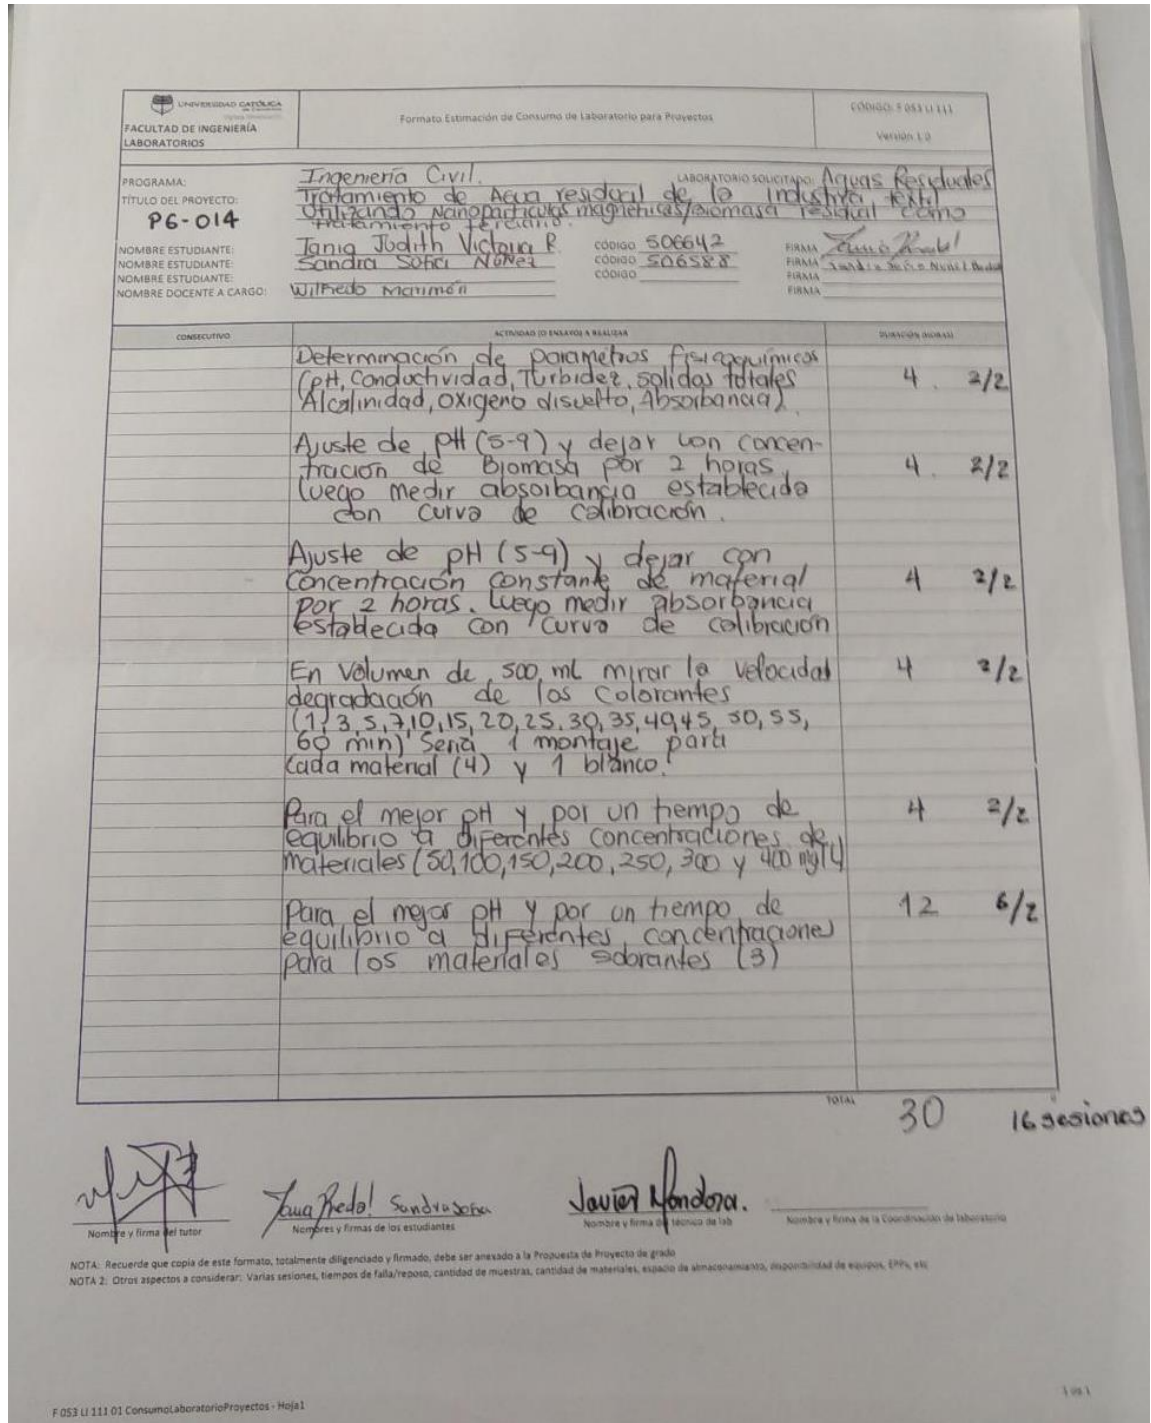 UNIVERSIDAD CATÓLICA
FACULTAD DE INGENIERÍA
LABORATORIOS
Formato Estimación de Consumo de Laboratorio para Proyectos
CÓDIGO: F 053 LI 111
Versión 1.0
PROGRAMA: Ingeniería Civil. LABORATORIO SOLICITADO: Aguas Residuales
TÍTULO DEL PROYECTO: Tratamiento de Agua residual de la Industria textil
PG-014 Utilizando Nanoparticulas magneticas/Biomasa residual como
tratamiento terciario.
NOMBRE ESTUDIANTE: Tania Judith Victoria R. CÓDIGO 506642 FIRMA
NOMBRE ESTUDIANTE: Sandra Sofia Núñez CÓDIGO 506588 FIRMA Sandra
NOMBRE ESTUDIANTE: CÓDIGO FIRMA
NOMBRE DOCENTE A CARGO: Wilfredo Marimón FIRMA
CONSECUTIVO ACTIVIDAD (O ENSAYO) A REALIZAR DURACIÓN (HORAS)
Determinación de parametros fisicoquímicos
(pH, Conductividad, Turbidez, solidos totales 4 2/2
Alcalinidad, oxigeno disuelto, Absorbancia)
Ajuste de pH (5-9) y dejar con concen-
tracion de Biomasa por 2 horas, 4 2/2
luego medir absorbancia establecida
con curva de calibración.
Ajuste de pH (5-9) y dejar con
concentración constante de material 4 2/2
por 2 horas. Luego medir absorbancia
establecida con curva de calibración
En volumen de 500 ml mirar la velocidad 4 2/2
degradación de los colorantes
(1, 3, 5, 7, 10, 15, 20, 25, 30, 35, 40, 45, 50, 55,
60 min) Seria 1 montaje para
cada material (4) y 1 blanco.
Para el mejor pH y por un tiempo de 4 2/2
equilibrio a diferentes concentraciones de
materiales (50, 100, 150, 200, 250, 300 y 400 mg/L)
Para el mejor pH y por un tiempo de 12 6/2
equilibrio a diferentes concentraciones
para los materiales sobrantes (3)
TOTAL 30 16 sesiones
Sandra Sofia
Javier Mendoza.
Nombre y firma del tutor Nombres y firmas de los estudiantes Nombre y firma del técnico de lab Nombre y firma de la Coordinación de laboratorio
NOTA: Recuerde que copia de este formato, totalmente diligenciado y firmado, debe ser anexado a la Propuesta de Proyecto de grado
NOTA 2: Otros aspectos a considerar: Varias sesiones, tiempos de falla/reposo, cantidad de muestras, cantidad de materiales, espacio de almacenamiento, disponibilidad de equipos, EPPs, etc
1 de 1
F 053 LI 111 01 ConsumoLaboratorioProyectos - Hoja1